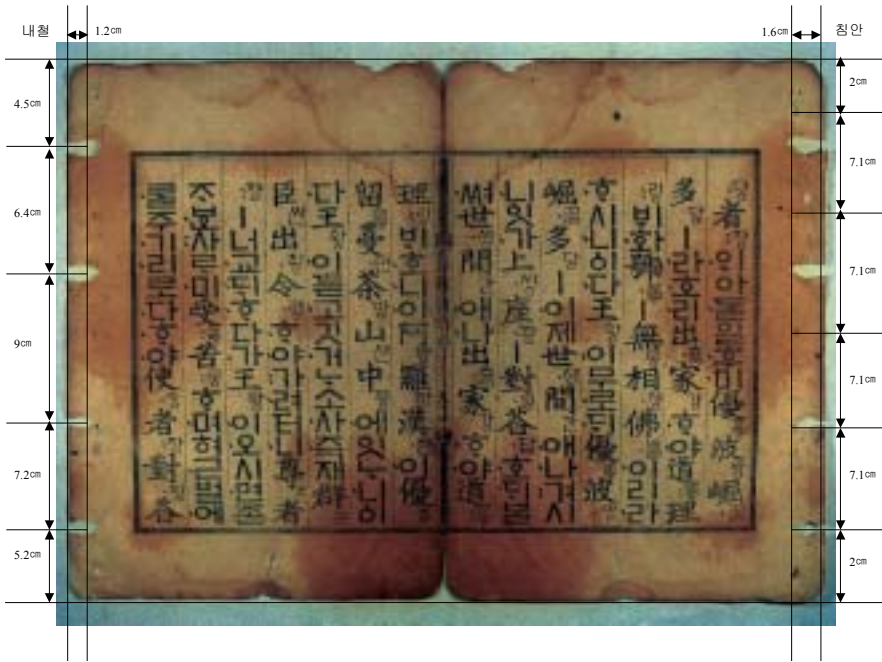 내철
1.2㎝
1.6㎝
침안
4.5㎝
6.4㎝
9㎝
7.2㎝
5.2㎝
2㎝
7.1㎝
7.1㎝
7.1㎝
7.1㎝
2㎝
者 優波崛
多ㅣ라호리出家ᄒᆞ야道理
ㅣ無相佛이리라
ᄒᆞ시니ᅌᅵ다王이무로ᄃᆡ優波
崛多ㅣ이제世間애나거시
니ᅌᅵᆺ가上座ㅣ對答호ᄃᆡ
쎠世間애나出家ᄒᆞ야道
理 阿羅漢이優
留蔓茶山中에잇ᄂᆞ니ᅌᅵ
다王이듣고깃거 소사즉재群
臣 出令ᄒᆞ야가려터니尊者
ㅣ너교ᄃᆡᄒᆞ다가王이오시면조
사ᄅᆞ미受苦ᄒᆞ며
주기리로다ᄒᆞ야使者 對答